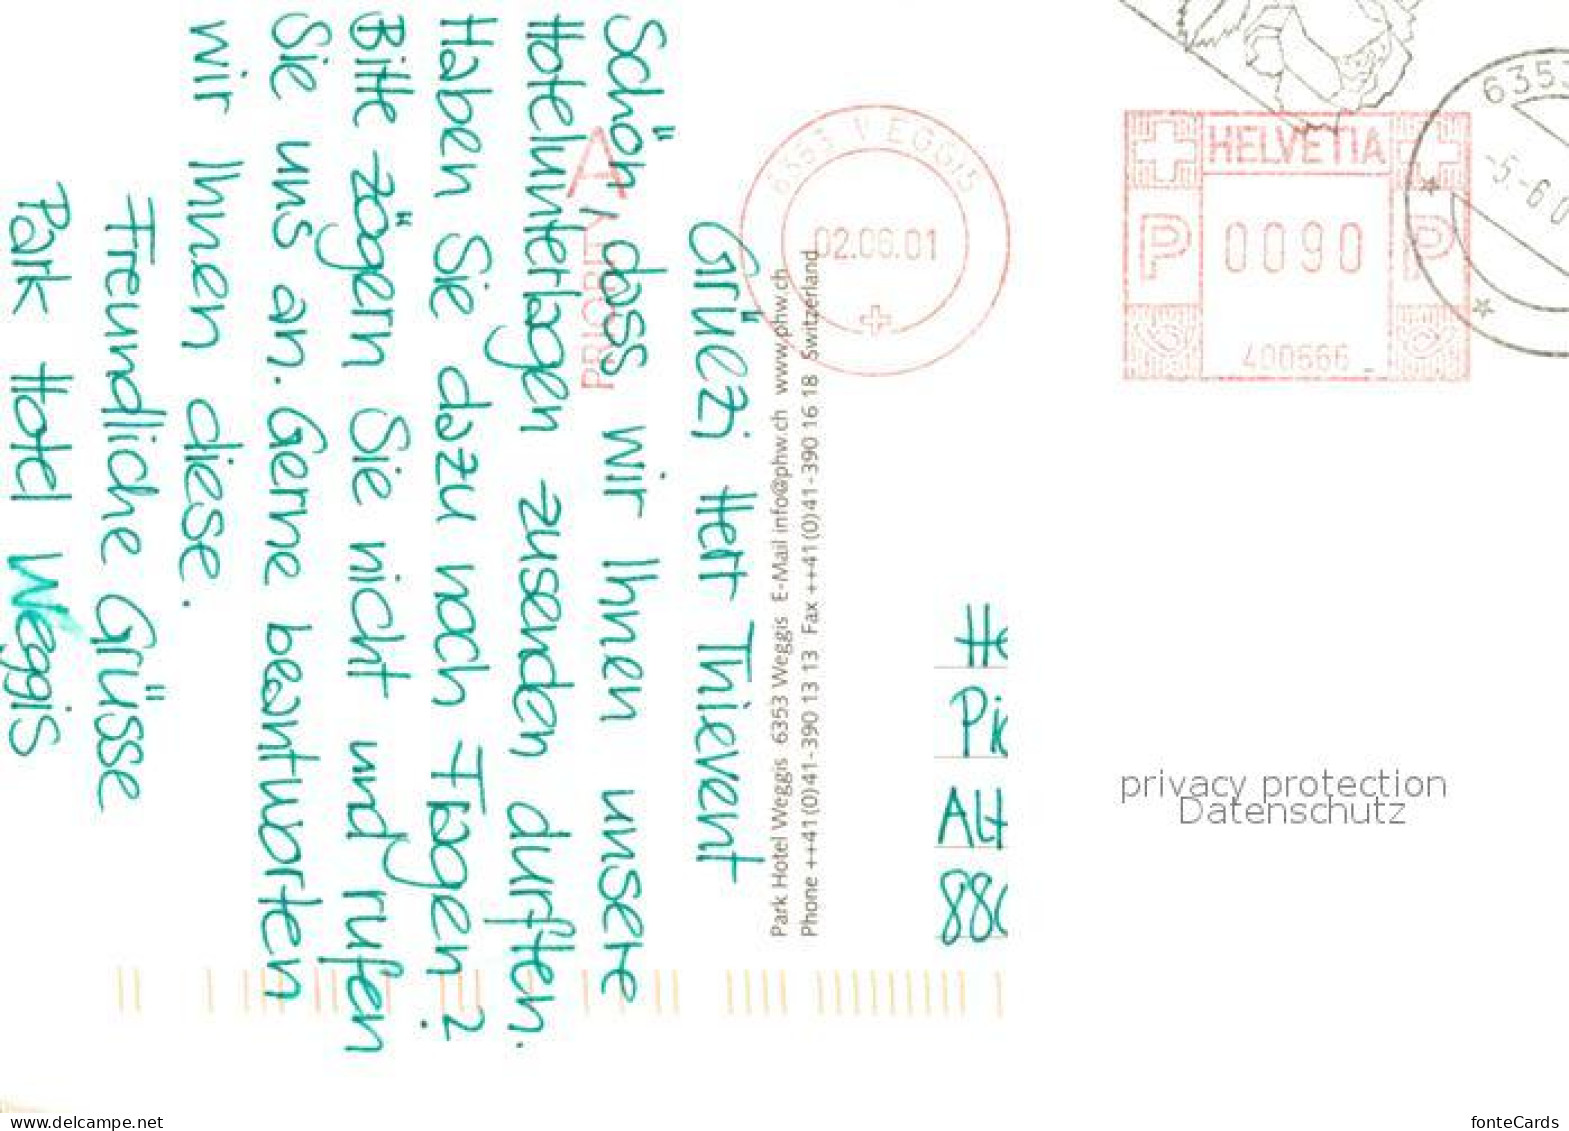 Grüezi Herr Thievent
Schön, dass wir Ihnen unsere
Hotelunterlagen zusenden durften.
Haben Sie dazu noch Fragen?
Bitte zögern Sie nicht und rufen
Sie uns an. Gerne beantworten
wir Ihnen diese.
Freundliche Grüsse
Park Hotel Weggis
A
PRIORITY
Park Hotel Weggis 6353 Weggis E-Mail info@phw.ch www.phw.ch
Phone ++41(0)41-390 13 13 Fax ++41(0)41-390 16 18 Switzerland
6353 WEGGIS
02.06.01
HELVETIA
P 0090 P
400566
6353
-5.-6 0
He
Pi
Alt
88
privacy protection
Datenschutz
www.delcampe.net
fonteCards